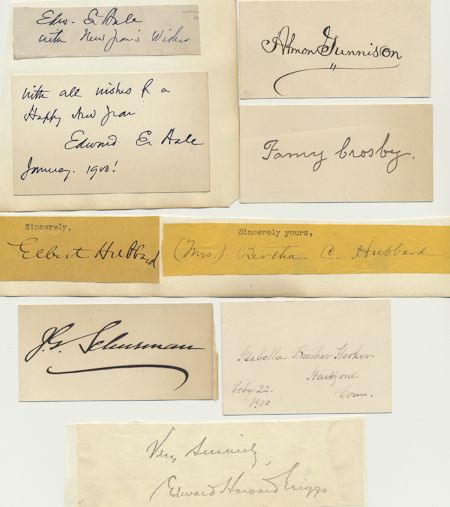 Edw. E. Hale
with New Year's Wishes
With all wishes for a
Happy New Year
Edward E. Hale
January. 1900!
Almon Gunnison
Fanny Crosby.
Sincerely,
Elbert Hubbard
Sincerely yours,
(Mrs.) Bertha C. Hubbard
J. G. Schurman
Isabella Beecher Hooker
Hartford
Conn.
Feby. 22.
1900
Very Sincerely,
Edward Howard Griggs